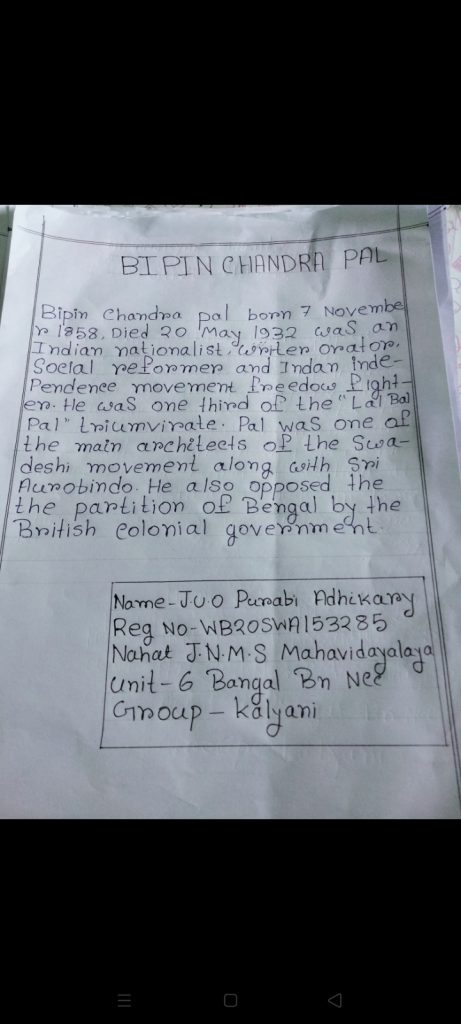 BIPIN CHANDRA PAL
Bipin Chandra pal born 7 Novembe
r 1858, Died 20 May 1932 was an
Indian nationalist, writer orator,
Social reformer and Indan inde-
Pendence movement freedow fight-
er. He was one third of the "Lal Bal
Pal" triumvirate. Pal was one of
the main architects of the Swa-
deshi movement along with Sri
Aurobindo. He also opposed the
the partition of Bengal by the
British colonial government.
Name-J.U.O Purabi Adhikary
Reg No-WB20SWA153285
Nahat J.N.M.S Mahavidayalaya
Unit-6 Bangal Bn Ncc
Group-Kalyani